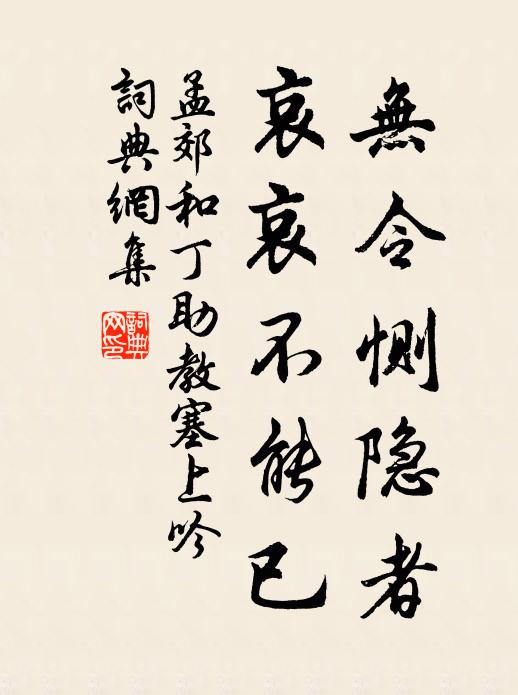 無令惻隐者
哀哀不能已
孟郊和丁助教塞上吟
詞典網集
詞典網印